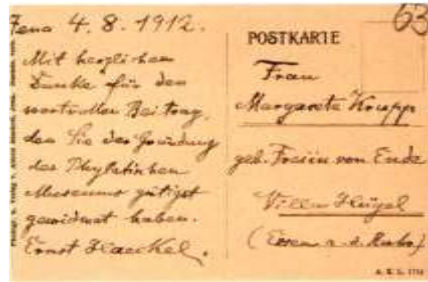 63
Jena 4.8.1912.
Mit herzlichem
Danke für den
wertvollen Beitrag,
den Sie der Gründung
des Phyletischen
Museums gütigst
gewidmet haben.
Ernst Haeckel.
POSTKARTE
Frau
Margarete Krupp
geb. Freiin von Ende
Villa Hügel
(Essen a. d. Ruhr)